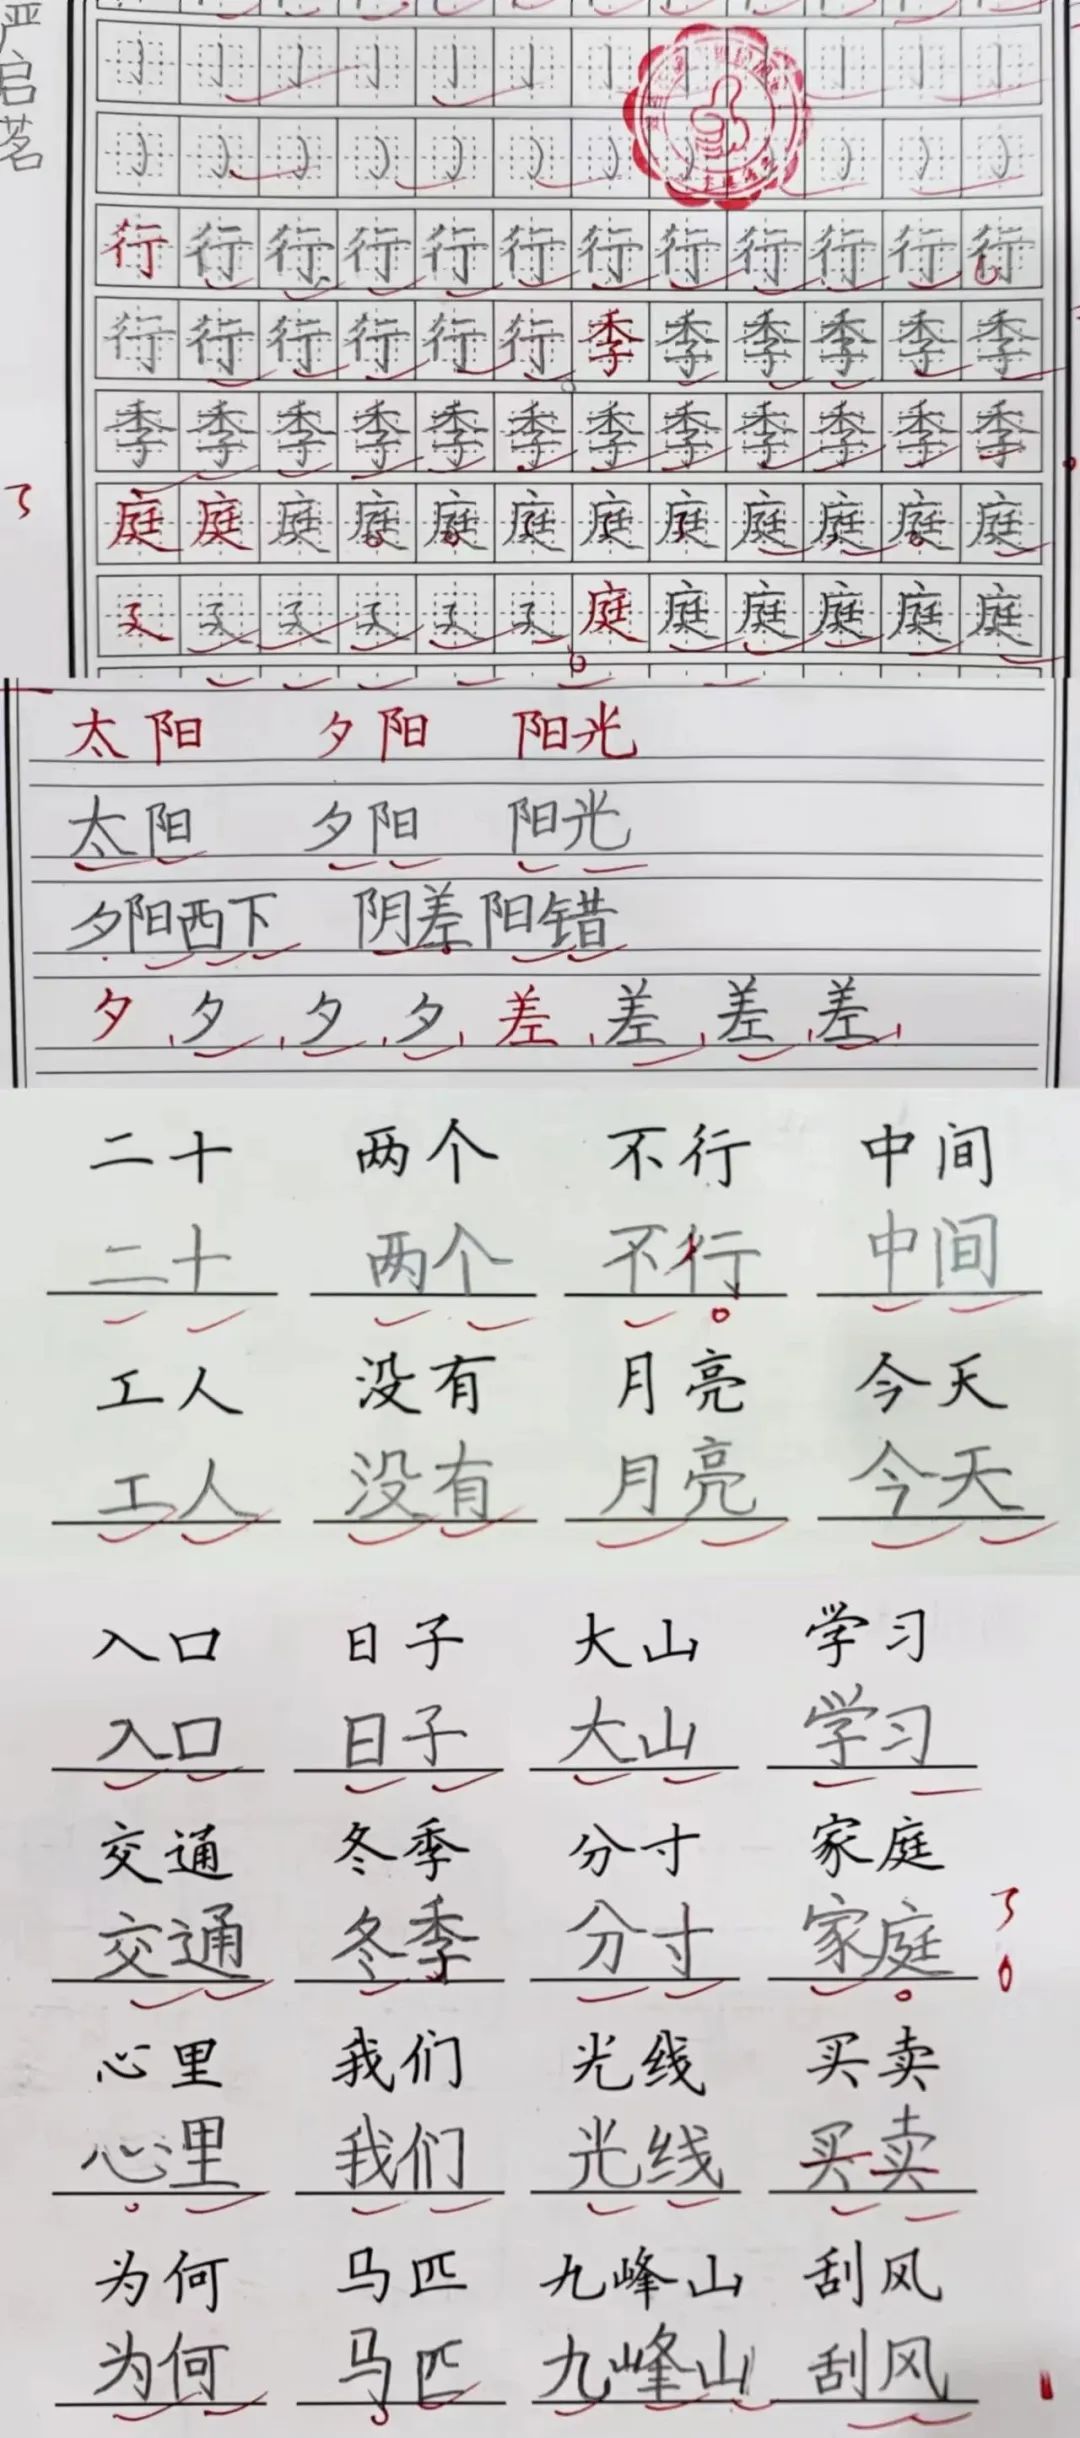 严启茗
行行行行行行行行行行行行
行行行行行行季季季季季季
季季季季季季季季季季季季
庭庭庭庭庭庭庭庭庭庭庭庭
廴廴廴廴廴廴庭庭庭庭庭庭
太阳 夕阳 阳光
太阳 夕阳 阳光
夕阳西下 阴差阳错
夕夕夕夕差差差差
二十 两个 不行 中间
二十 两个 不行 中间
工人 没有 月亮 今天
工人 没有 月亮 今天
入口 日子 大山 学习
入口 日子 大山 学习
交通 冬季 分寸 家庭
交通 冬季 分寸 家庭
心里 我们 光线 买卖
心里 我们 光线 买卖
为何 马匹 九峰山 刮风
为何 马匹 九峰山 刮风